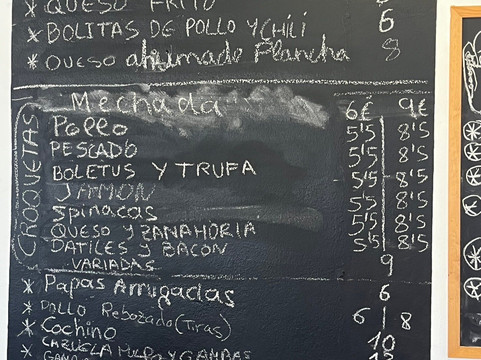 * QUESO FRITO
* BOLITAS DE POLLO Y CHILI 6
* QUESO ahumado Plancha 8
CROQUETAS
Mechada 6€ 9€
Pollo 5'5 8'5
PESCADO 5'5 8'5
BOLETUS Y TRUFA 5'5 8'5
JAMON 5'5 8'5
Spinacas 5'5 8'5
QUESO Y ZANAHORIA 5'5 8'5
DATILES Y BACON
VARIADAS 9
* Papas Arrugadas 6
* POLLO Rebozado (Tiras) 6 8
* Cochino 10
* CAZUELA PULPO Y GAMBAS